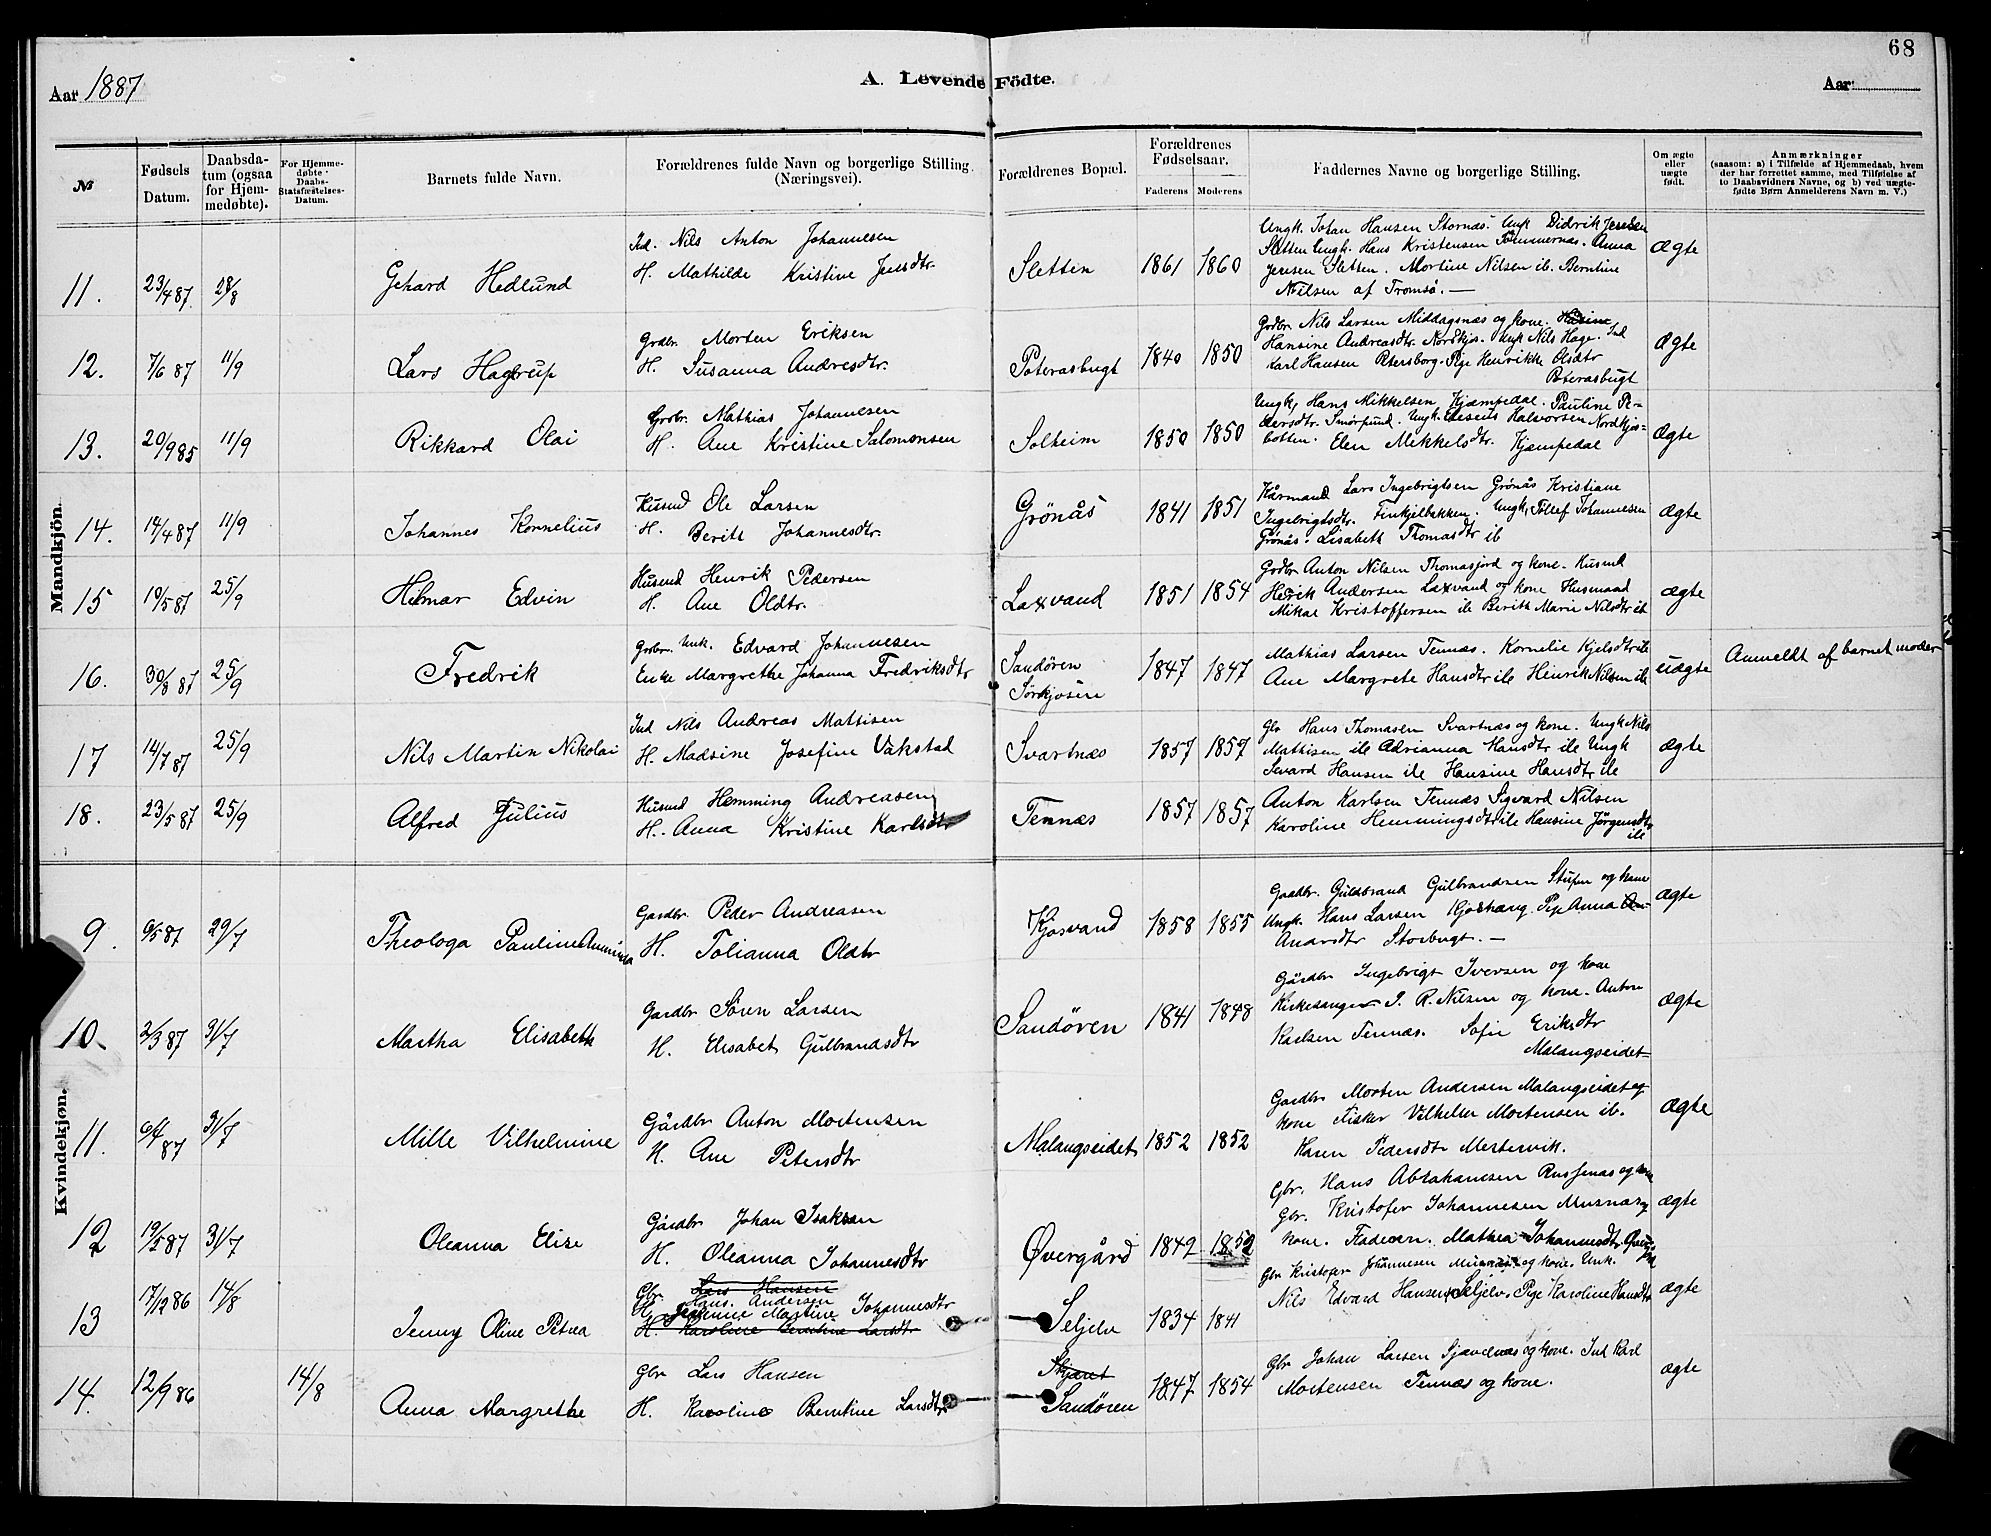 68
Aar 1887
A. Levende Födte.
Aar
№
Fødsels Datum.
Daabsda-tum (ogsaa for Hjem-medøbte).
For Hjemme-døbte Daabs-Statsfæstelses-Datum.
Barnets fulde Navn.
Forældrenes fulde Navn og borgerlige Stilling. (Næringsvei).
Forældrenes Bopæl.
Forældrenes Fødselsaar.
Faderens
Moderens
Faddernes Navne og borgerlige Stilling.
Om ægte eller uægte født.
Anmærkninger
(saasom: a) i Tilfælde af Hjemmedaab, hvem
der har forrettet samme, med Tilføielse af
to Daabsvidners Navne, og b) ved uægte-
fødte Børn Anmelderens Navn m. V.)
Mandkjön.
11. 23/4 87. 28/8 Gehard Hedlund
Ind. Nils Anton Johannesen
H. Mathilde Kristine Jensdtr.
Sletten 1861 1860
Ungk. Johan Hansen Stornæs. Ungk Didrik Jensen
Sletten Ungk. Hans Kristensen Tømmernæs. Anna
Jensen Sletten. Mortine Nilsen ib. Berntine
Nilsen af Tromsø. —
Ægte
12. 7/6 87 11/9 Lars Hagerup
Grdbr. Morten Eriksen
H. Susanna Andresdtr.
Poterasbugt 1840 1850
Grdbr. Nils Larsen Middagsnæs og kone.
Hansine Andreasdtr. Nordkjos. Ungk Nils Hage. Ind
Karl Hansen Petersborg. Pige Henrikke Olsdtr
Poterasbugt
Ægte
13. 20/9 85 11/9 Rikkard Olai
Grdbr. Mathias Johannesen
H. Ane Kristine Salomonsen
Solheim 1850 1850
Ungk, Hans Mikkelsen Kjæmpedal. Pauline Pe-
dersdtr. Smørfund. Ungk. Eliseus Halvorsen Nordkjos-
botten. Elen Mikkelsdtr. Kjæmpedal
Ægte
14. 14/4 87 11/9 Johannes Kornelius
Husmd Ole Larsen
H. Berith Johannesdtr.
Grönås 1841 1851
Kårmand Lars Ingebrigtsen Grönås Kristiane
Ingebrigtsdtr. Finkjelbakken. Ungk, Tollef Johannesen
Grönås. Lisabeth Thomasdtr ib
Ægte
15 10/5 87 25/9 Hilmar Edvin
Husmd Henrik Pedersen
H. Ane Oldtr.
Laxvand 1851 1854
Grdbr Anton Nilsen Thomasjord og kone. Husmd
Henrik Andersen Laxvand og kone Husmand
Mikal Kristoffersen ib Berith Marie Nilsdtr ib
ægte
16. 30/8 87 25/9 Fredrik
Grdbr. Unk. Edvard Johannesen
Enke Margrethe Johanna Fredriksdtr
Sandören
Sörkjosen
1847 1847
Mathias Larsen Tennæs. Kornelie Kjelsdtr ib
Ane Margrete Hansdtr ib Henrik Nilsen ib
uægte
Anmeldt af barnet moder
17 14/7 87 25/9 Nils Martin Nikolai
Ind Nils Andreas Mattisen
H. Madsine Josefine Vakstad
Svartnæs 1857 1857
Gbr Hans Thomasen Svartnæs og kone. Ungk Nils
Mattisen ib Adrianna Hansdtr ib Ungk
Sevard Hansen ib Hansine Hansdtr ib
ægte
18. 23/5 87 25/9 Alfred Julius
Husmd Hemming Andreasen
H. Anna Kristine Karlsdtr
Tennæs 1857 1857
Anton Karlsen Tennæs Sigvard Nilsen
Karoline Hemmingsdtr ib Hansine Jørgensdtr
ib
Kvindekjøn.
9. 6/5 87 29/7 Theologa Pauline Annunda
Gardbr. Peder Andreasen
H. Tolianna Oldtr
Kjosvand 1858 1855
Gaardbr. Guldbrand Gulbrandsen Stupen og kone
Ungk. Hans Larsen Kjoshaug. Pige Anna
Andrsdtr Storbugt. —
ægte
10. 2/3 87 31/7 Martha Elisabeth
Gardbr Søren Larsen
H. Elisabet Gulbrandsdtr
Sandören 1841 1848
Gårdbr Ingebrigt Iversen og kone
Kirkesanger J. R. Nilsen og kone. Anton
Karlsen Tennæs. Sofie Eriksdtr
Malangseidet
ægte
11. 6/4 87 31/7 Mille Vilhelmine
Gårdbr Anton Mortensen
H. Ane Petersdtr
Malangseidet 1852 1852
Gardbr Morten Andersen Malangseidet og
kone Fisker Vilhelm Mortensen ib.
Karen Pedersdtr Mestervik.
ægte
12 19/5 87 31/7 Oleanna Elise
Gårdbr Johan Isaksen
H. Oleanna Johannesdtr
Øvergård 1842 1852
Gbr. Hans Abrahamsen Russenæs og kone
Gbr. Kristofer Johannesen Musnæs og
kone. Faderen. Mathea Johannesdtr. Øvergård
ægte
13 17/12 86 14/8 Jenny Oline Petrea
Gbr. Lars Hansen
Hans Andersen
H. Martine Johannesdtr
H. Karoline Berntine Larsdtr
Seljelv 1834 1841
Gbr Kristofer Johannesen Musnæs og kone. Unk.
Nils Edvard Hansen Seljelv. Pige Karoline Hansdtr
ægte
14. 12/9 86 14/8 Anna Margrethe
Gbr Lars Hansen
H. Karoline Berntine Larsdtr
Sandören 1847 1854
Gbr Johan Larsen Sjaavdnæs og kone. Ind Karl
Mortensen Tennæs og kone.
ægte